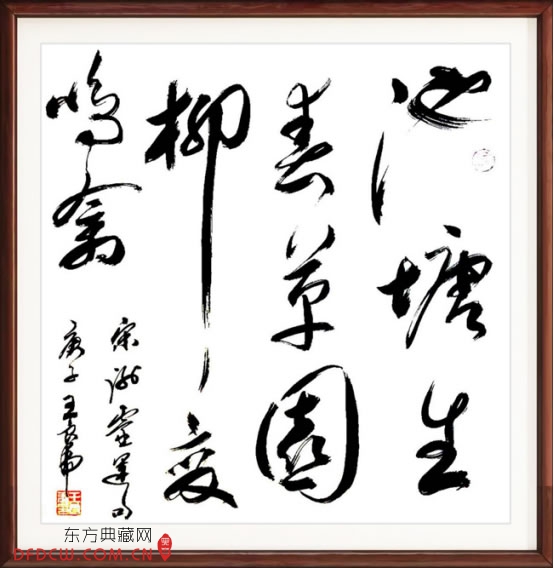 池塘生
春草園
柳變
鳴禽
宋謝靈運句
庚子王
东方典藏网
DFDCW.COM.CN